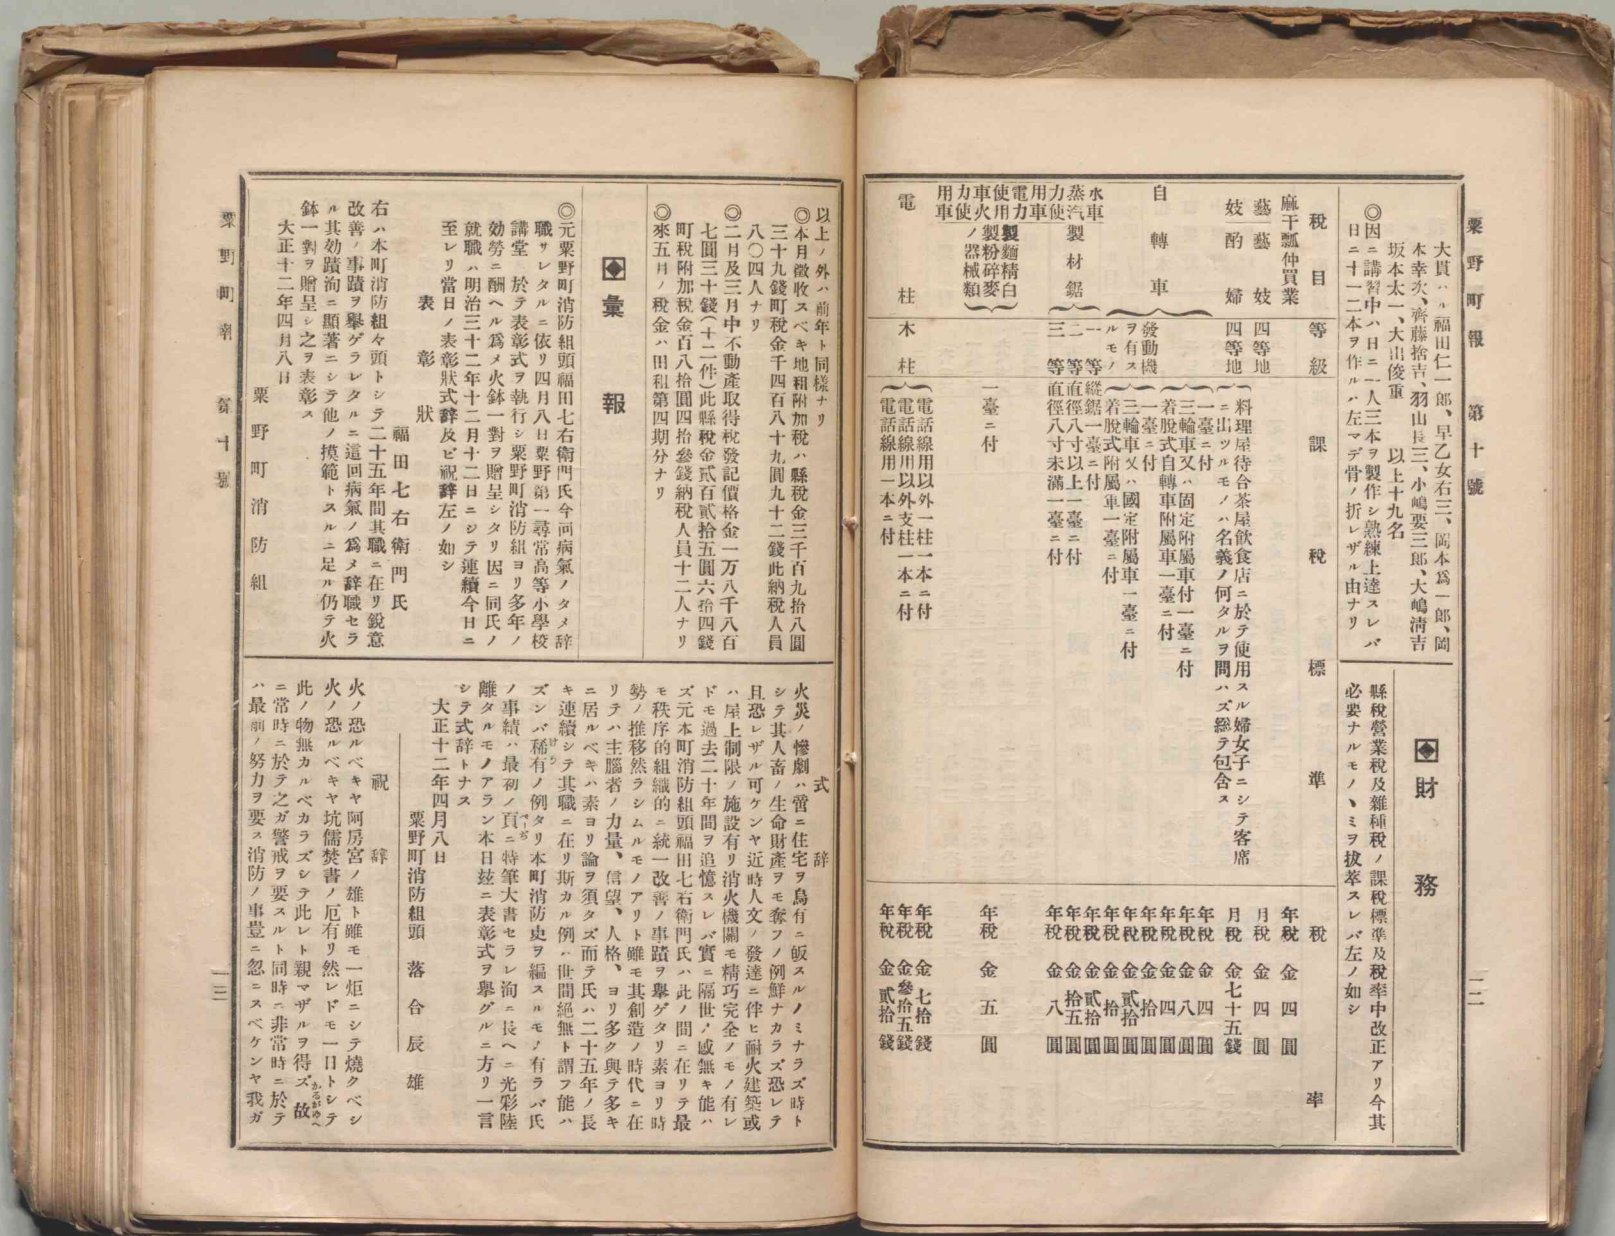 粟野町報 第十號
一二
大貫ハル福田仁一郎、早乙女右三、岡本爲一郎、岡
本幸次、齊藤捨吉、羽山長三、小嶋要三郎、大嶋淸吉
坂本太一、大出俊重　以上十九名
◎因ニ講習中ハ日ニ一人三本ヲ製作シ熟練上達スレバ
日ニ十一二本ヲ作ルハ左マデ骨ノ折レザル由ナリ
財務
縣稅營業稅及雜種稅ノ課稅標準及稅率中改正アリ今其
必要ナルモノヽミヲ拔萃スレバ左ノ如シ
稅目 等級 課稅標準 稅率
麻干瓢仲買業 年稅 金四圓
藝藝妓 四等地 月稅 金四圓
妓酌婦 四等地 料理屋待合茶屋飮食店ニ於テ使用スル婦女子ニシテ客席
ニ出ツルモノハ名義ノ何タルヲ問ハズ總テ包含ス 月稅 金七十五錢
自轉車 一臺ニ付 年稅 金四圓
三輪車又ハ固定附屬車付一臺ニ付 年稅 金八圓
着脫式自轉車附屬車一臺ニ付 年稅 金四圓
發動機ヲ有スルモノ 一臺ニ付 年稅 金拾圓
三輪車又ハ國定附屬車一臺ニ付 年稅 金貳拾圓
着脫式附屬車一臺ニ付 年稅 金拾圓
水車
蒸汽力使用車
電力使用車
火力使用車
製材鋸
一等 縱鋸一臺ニ付 年稅 金貳拾圓
二等 直徑八寸以上一臺ニ付 年稅 金拾五圓
三等 直徑八寸未滿一臺ニ付 年稅 金八圓
製麵精白
製粉碎麥
ノ器械類
一臺ニ付 年稅 金五圓
電柱 木柱 電話線用以外一柱一本ニ付 年稅 金七拾錢
電話線用以外支柱一本ニ付 年稅 金參拾五錢
電話線用一本ニ付 年稅 金貳拾錢
以上ノ外ハ前年ト同樣ナリ
◎本月徵收スベキ地租附加稅ハ縣稅金三千百九拾八圓
三十九錢町稅金千四百八十九圓九十二錢此納稅人員
八〇四人ナリ
◎二月及三月中不動產取得稅發記價格金一万八千八百
七圓三十錢(十二件)此縣稅金貳百貳拾五圓六拾四錢
町稅附加稅金百八拾圓四拾參錢納稅人員十二人ナリ
◎來五月ノ稅金ハ田租第四期分ナリ
彙報
◎元粟野町消防組頭福田七右衛門氏今回病氣ノタメ辞
職サレタルニ依リ四月八日粟野第一尋常高等小學校
講堂　於テ表彰式ヲ執行シ粟野町消防組ヨリ多年ノ
効勞ニ酬ヘル爲メ火鉢一對ヲ贈呈シタリ因ニ同氏ノ
就職ハ明治三十二年十二月十二日ニシテ連續今日ニ
至レリ當日ノ表彰狀式辞及ビ祝辞左ノ如シ
表彰狀
福田七右衛門氏
右ハ本町消防組々頭トシテ二十五年間其職ニ在リ銳意
改善ノ事蹟ヲ擧ゲラレタルニ這回病氣ノ爲メ辞職セラ
ル其効蹟洵ニ顯著ニシテ他ノ摸範トスルニ足ル仍テ火
鉢一對ヲ贈呈シ之ヲ表彰ス
大正十二年四月八日
粟野町消防組
式辞
火災ノ慘劇ハ啻ニ住宅ヲ烏有ニ皈スルノミナラズ時ト
シテ其人畜ノ生命財產ヲモ奪フノ例鮮ナカラズ恐レテ
且恐レザル可ケンヤ近時人文ノ發達ニ伴ヒ耐火建築或
ハ屋上制限ノ施設有リ消火機關モ精巧完全ノモノ有レ
ドモ過去二十年間ヲ追憶スレバ實ニ隔世ノ感無キ能ハ
ズ元本町消防組頭福田七右衛門氏ハ此ノ間ニ在リテ最
モ秩序的組織的ニ統一改善ノ事蹟ヲ擧ゲタリ素ヨリ時
勢ノ推移然ラシムルモノアリト雖モ其創造ノ時代ニ在
リテハ主腦者ノ力量、信望、人格、ヨリ多ク與テ多キ
ニ居ルベキハ素ヨリ論ヲ須タズ而テ氏ハ二十五年ノ長
キ連續シテ其職ニ在リ斯カル例ハ世間絕無ト謂フ能ハ
ズンバ稀有ノ例タリ本町消防史ヲ編スルモノ有ラバ氏
ノ事績ハ最初ノ頁ニ特筆大書セラレ洵ニ長ヘニ光彩陸
離タルモノアラン本日玆ニ表彰式ヲ擧グルニ方リ一言
シテ式辞トナス
大正十二年四月八日
粟野町消防組頭　落合辰雄
祝辞
火ノ恐ルベキヤ阿房宮ノ雄ト雖モ一炬ニシテ燒クベシ
火ノ恐ルベキヤ坑儒焚書ノ厄有リ然レドモ一日トシテ
此ノ物無カルベカラズシテ此レト親マザルヲ得ズ故
ニ常時ニ於テ之ガ警戒ヲ要スルト同時ニ非常時ニ於テ
ハ最前ノ努力ヲ要ス消防ノ事豈ニ忽ニスベケンヤ我ガ
粟野町報 第十號
一三